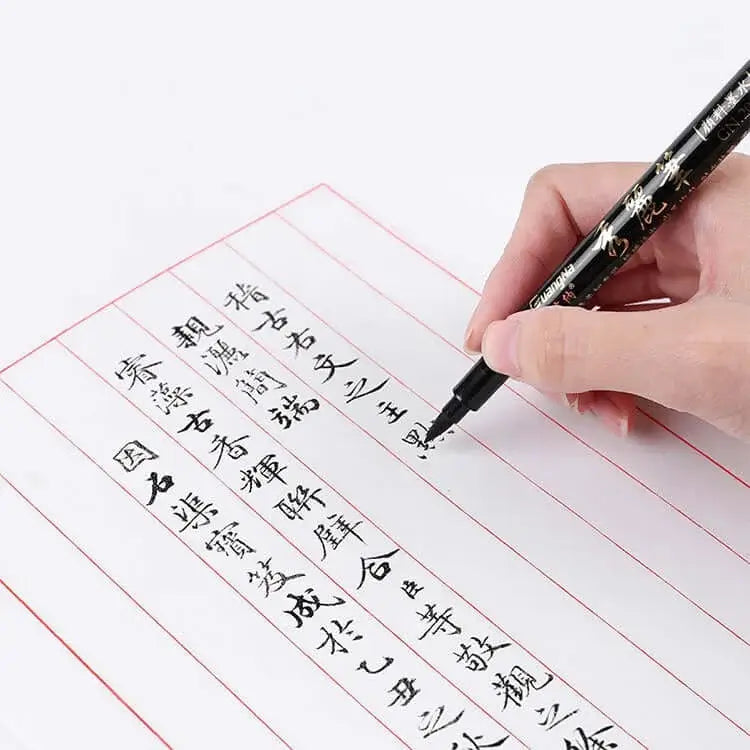 稽古右文之主
親灑簡端
睿藻古香輝聯璧合臣等敬觀之餘
因石渠寶笈成於乙丑之秋
Guangna
秀麗筆